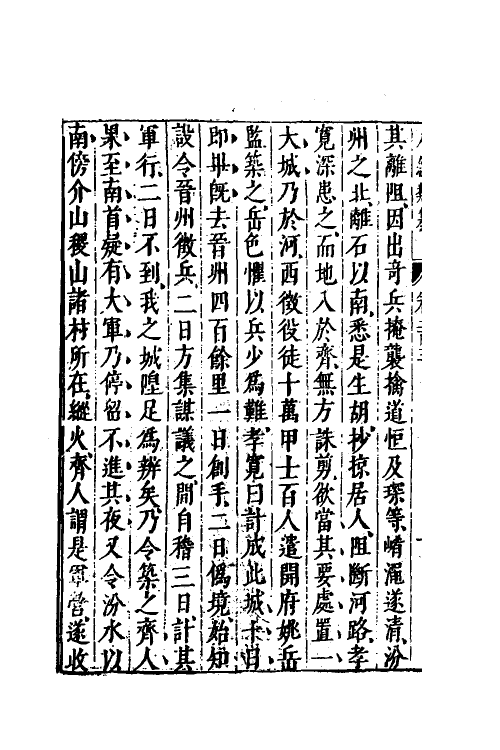 其離阻因出竒兵掩襲擒道恒及琛等崤澠遂清汾
州之北離石以南悉是生胡抄掠居人阻斷河路孝
寬深患之而地入於齊無方誅剪欲當其要處置一
大城乃於河西徵役徒十萬甲士百人遣開府姚岳
監築之岳色懼以兵少爲難孝寬曰計成此城十日
即畢既去晉州四百餘里一日創手二日僞境始知
設令晉州徵兵二日方集謀議之間自稽三日計其
軍行二日不到我之城隍足爲辨矣乃令築之齊人
果至南首疑有大軍乃停留不進其夜又令汾水以
南傍介山稷山諸村所在縱火齊人謂是軍營遂收